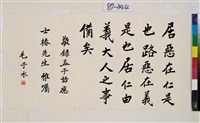 居惡在仁是
也路惡在義
是也居仁由
義大人之事
備矣
敬錄孟子語應
先生雅屬
毛子水